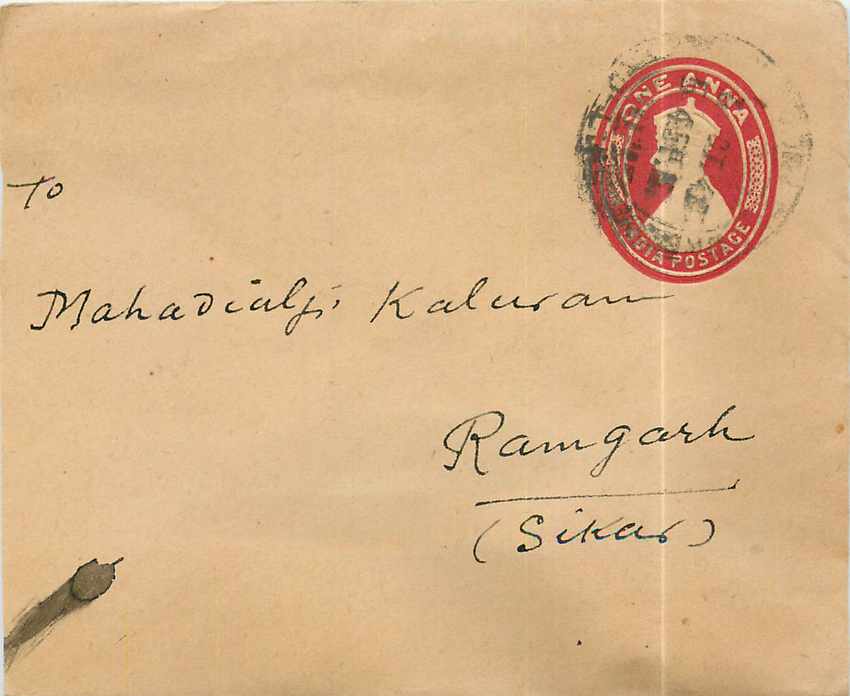 ONE ANNA
INDIA POSTAGE
To
Mahadialji Kaluram
Ramgarh
(Sikar)